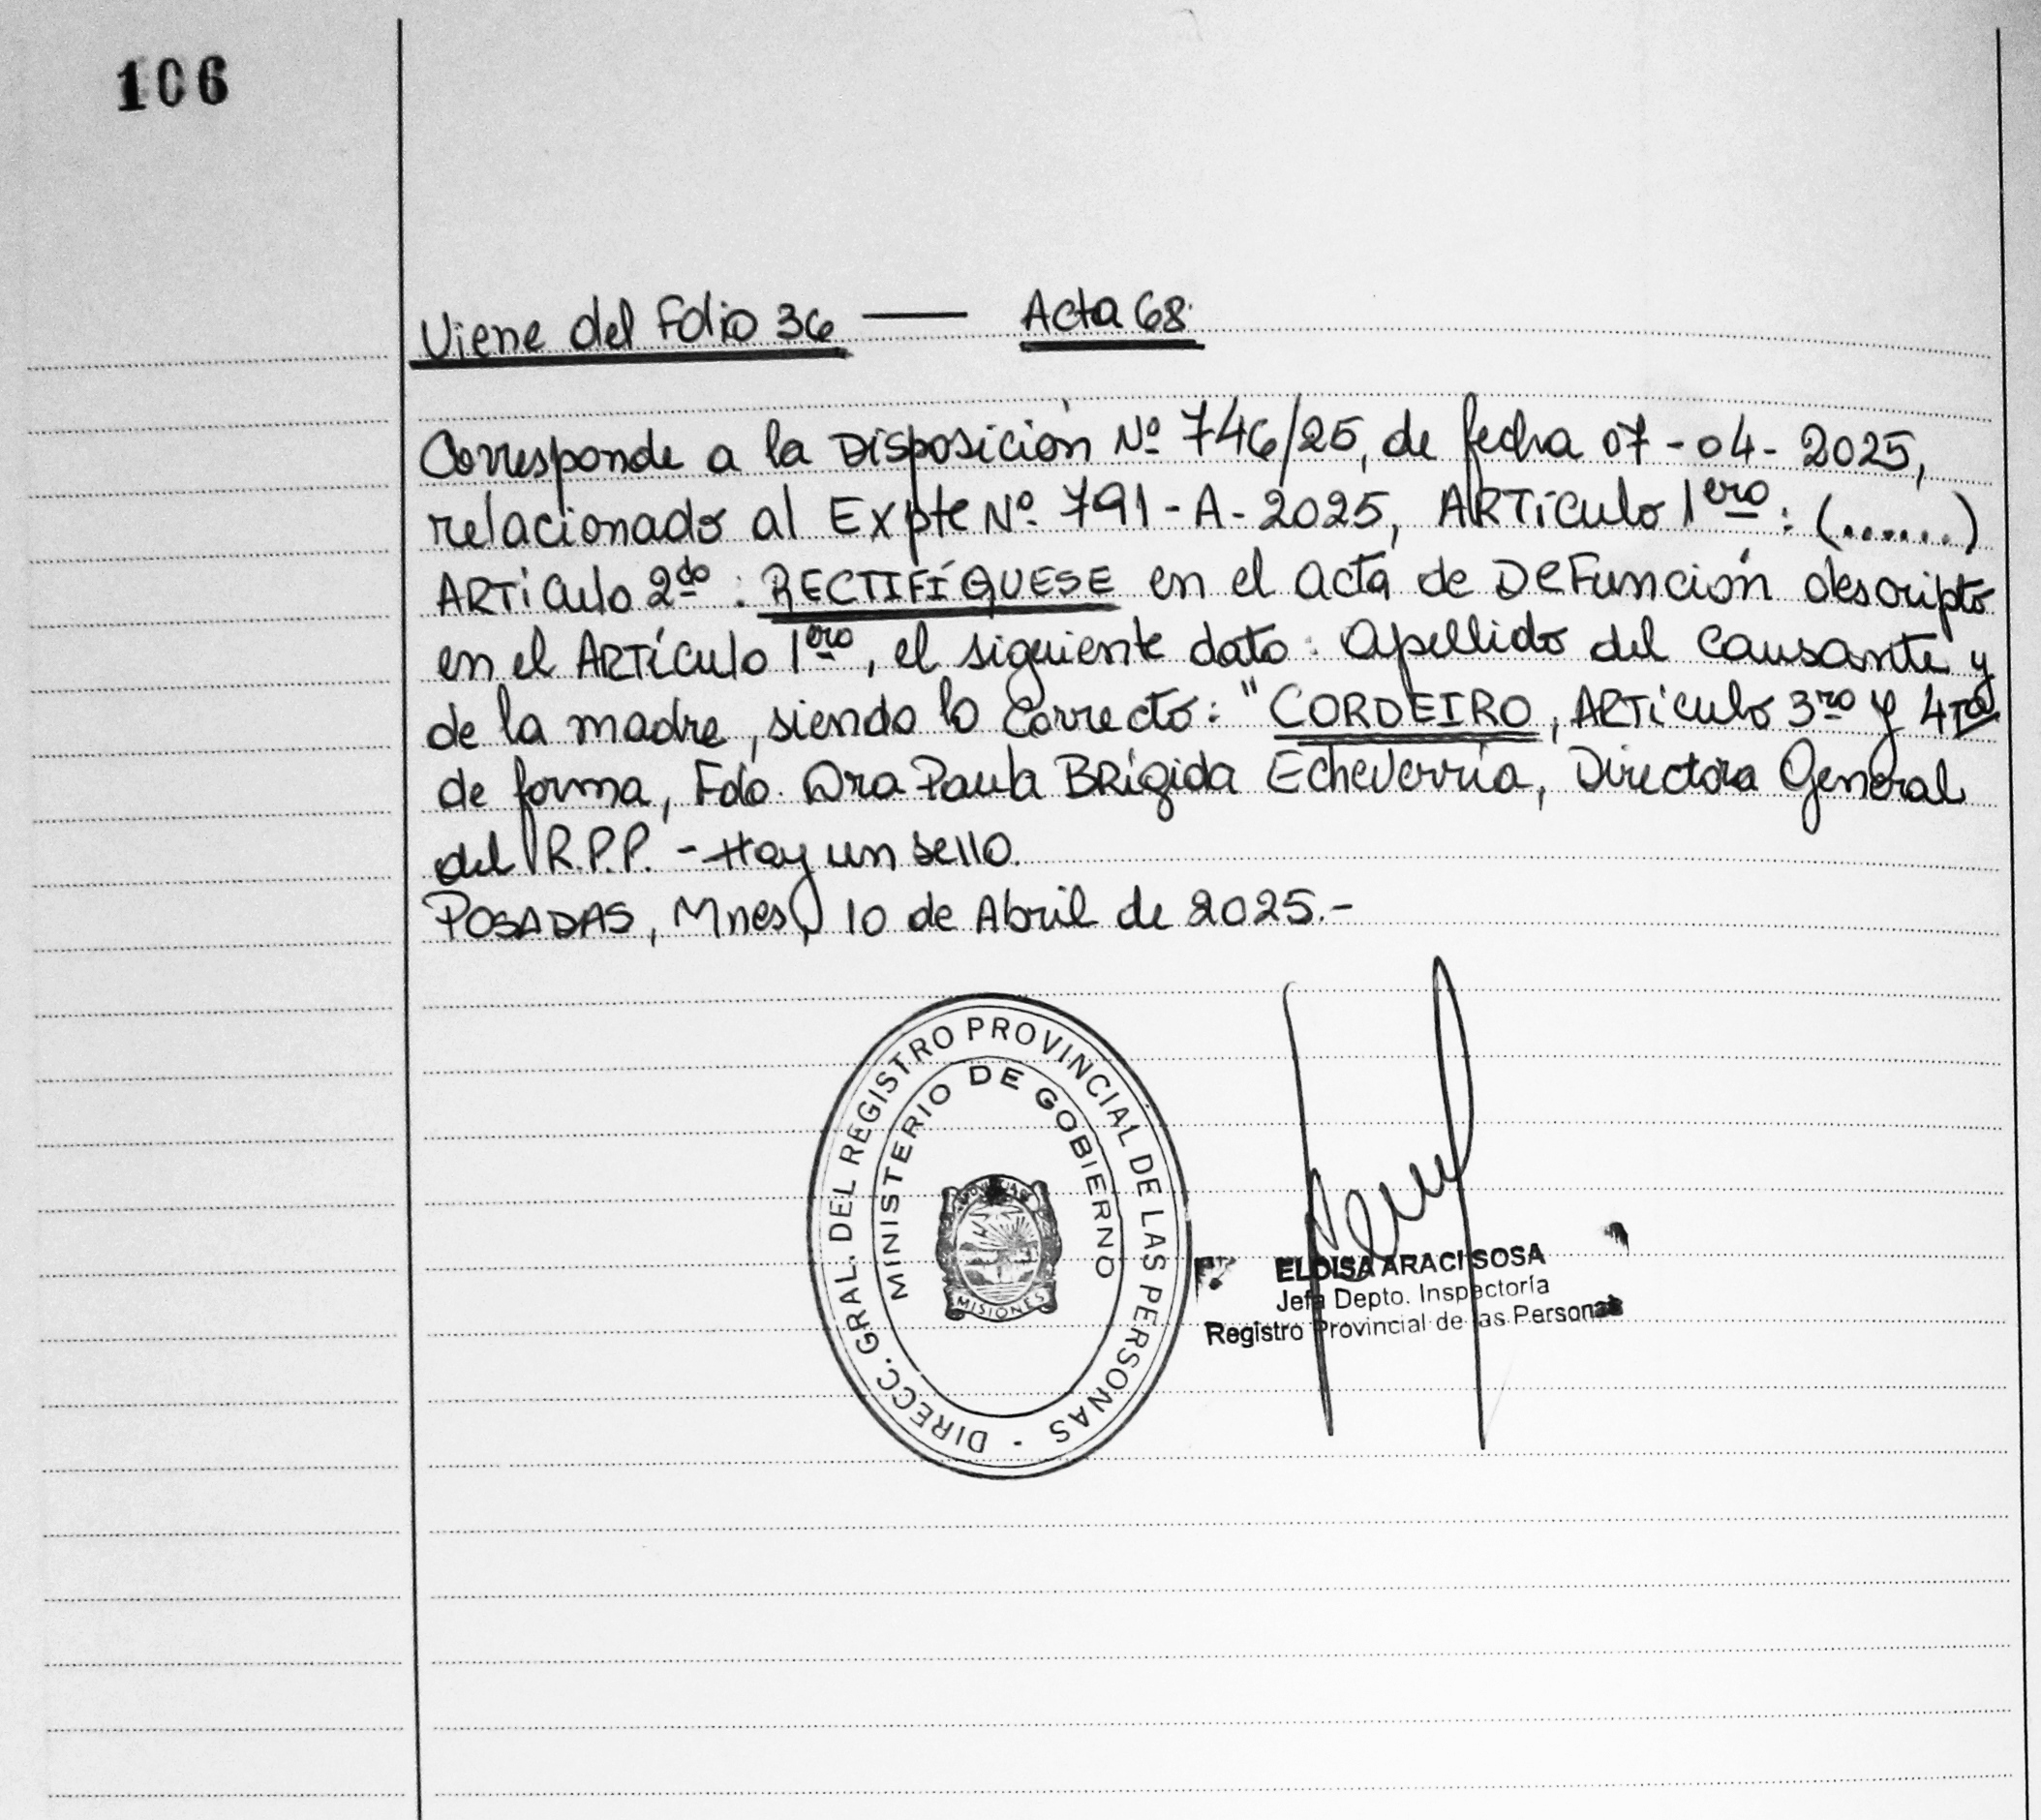 106
Viene del Folio 36 — Acta 68
Corresponde a la Disposición Nº 746/25, de fecha 07-04-2025,
relacionado al Expte Nº 791-A-2025, ARTículo 1ero: (.......)
ARTículo 2do: RECTIFÍQUESE en el acta de DeFunción descripto
en el ARTículo 1ero, el siguiente dato: Apellido del causante y
de la madre, siendo lo correcto: "CORDEIRO, ARTículo 3ro y 4to
de forma, Fdo. Dra Paula Brígida Echeverría, Directora General
del R.P.P. - Hay un sello.
POSADAS, Mnes, 10 de Abril de 2025.-
DIRECC. GRAL. DEL REGISTRO PROVINCIAL DE LAS PERSONAS -
MINISTERIO DE GOBIERNO
PROVINCIA DE
MISIONES
ELOISA ARACI SOSA
Jefa Depto. Inspectoría
Registro Provincial de las Personas